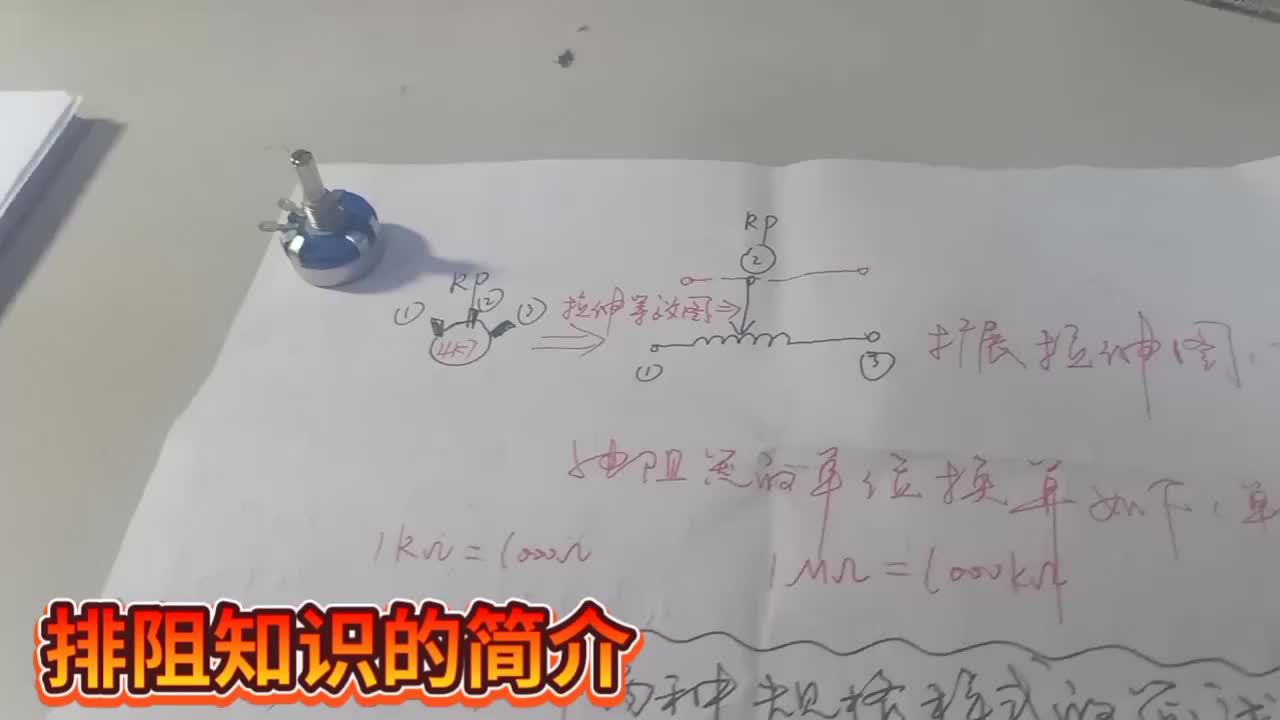 RP
②
RP
① ② ③
4K7
拉伸等效图⇒
① ③
扩展拉伸图.
电阻器的单位换算如下,单
1KΩ=1000Ω 1MΩ=1000KΩ
排阻知识的简介
两种规格样式的